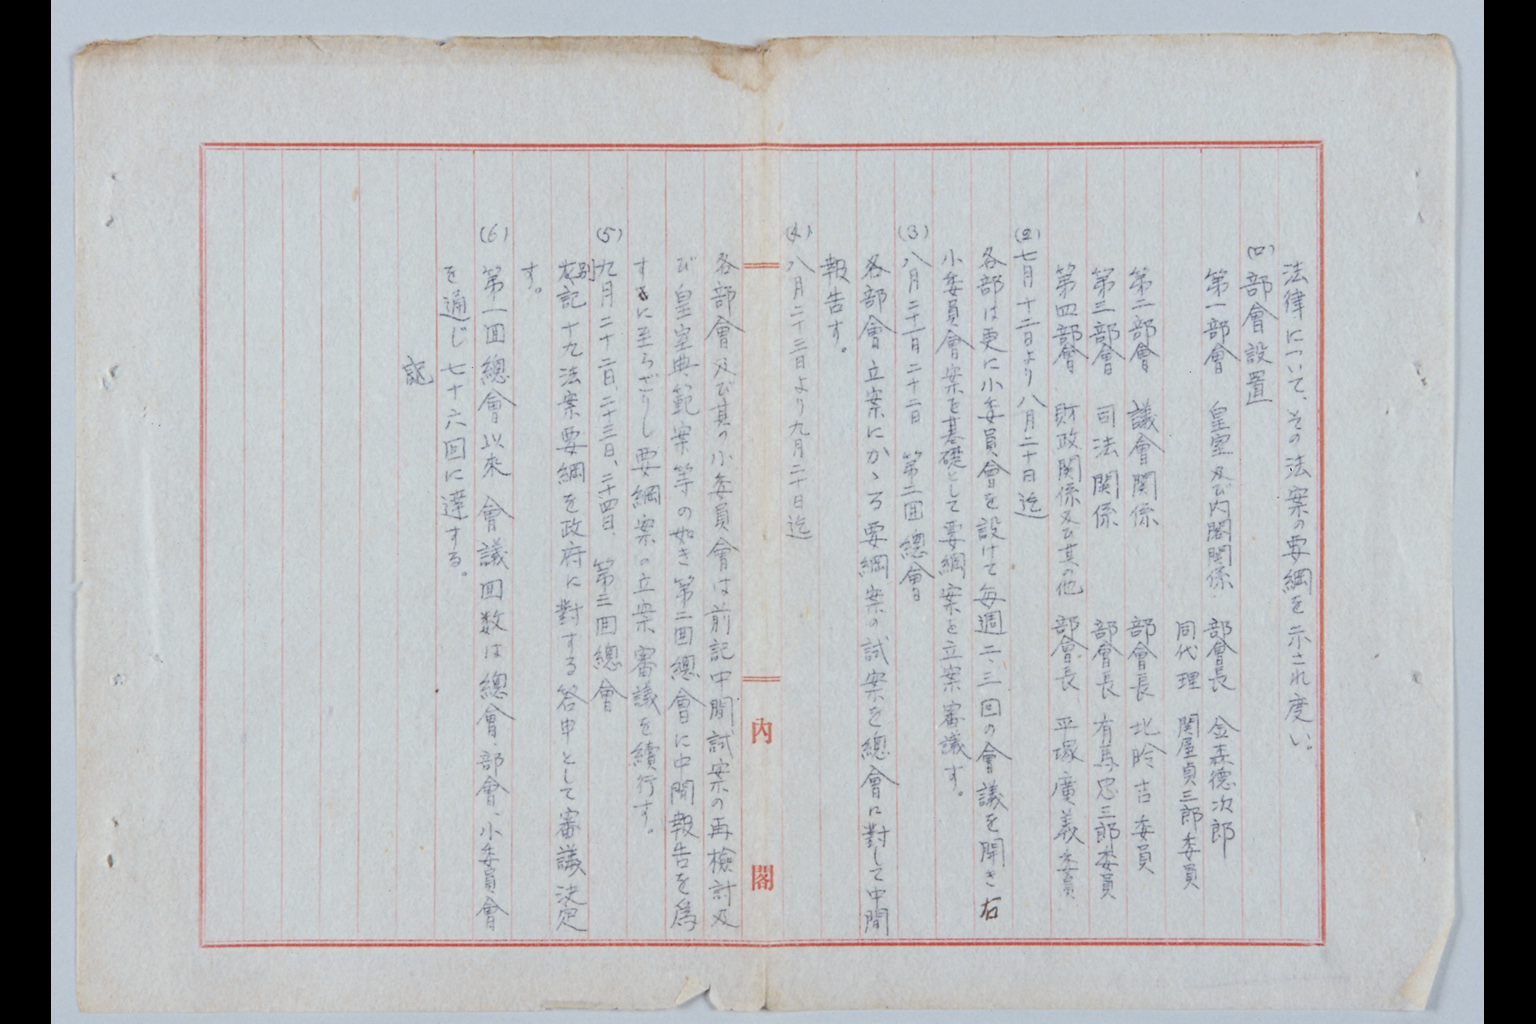 法律について、その法案の要綱を示され度い。
(ロ)部會設置
第一部會 皇室及び内閣関係 部會長 金森德次郎
同代理 関屋貞三郎委員
第二部會 議會関係 部會長 北昤吉委員
第三部會 司法関係 部會長 有馬忠三郎委員
第四部會 財政関係及び其の他 部會長 平塚廣義委員
(2)七月十二日より八月二十日迄
各部は更に小委員會を設けて毎週二、三回の會議を開き右
小委員會案を基礎として要綱案を立案審議す。
(3)八月二十一日二十二日 第二回總會
各部會立案にかゝる要綱案の試案を總會に對して中間
報告す。
(4)八月二十三日より九月二十日迄
各部會及び其の小委員會は前記中間試案の再檢討及
び皇室典範案等の如き第二回總會に中間報告を爲
すに至らざりし要綱案の立案審議を續行す。
(5)九月二十二日、二十三日、二十四日、第三回總會
別記十九法案要綱を政府に對する答申として審議決定
す。
(6)第一回總會以來會議回数は總會、部會、小委員會
を通じ七十六回に達する。
記
内閣